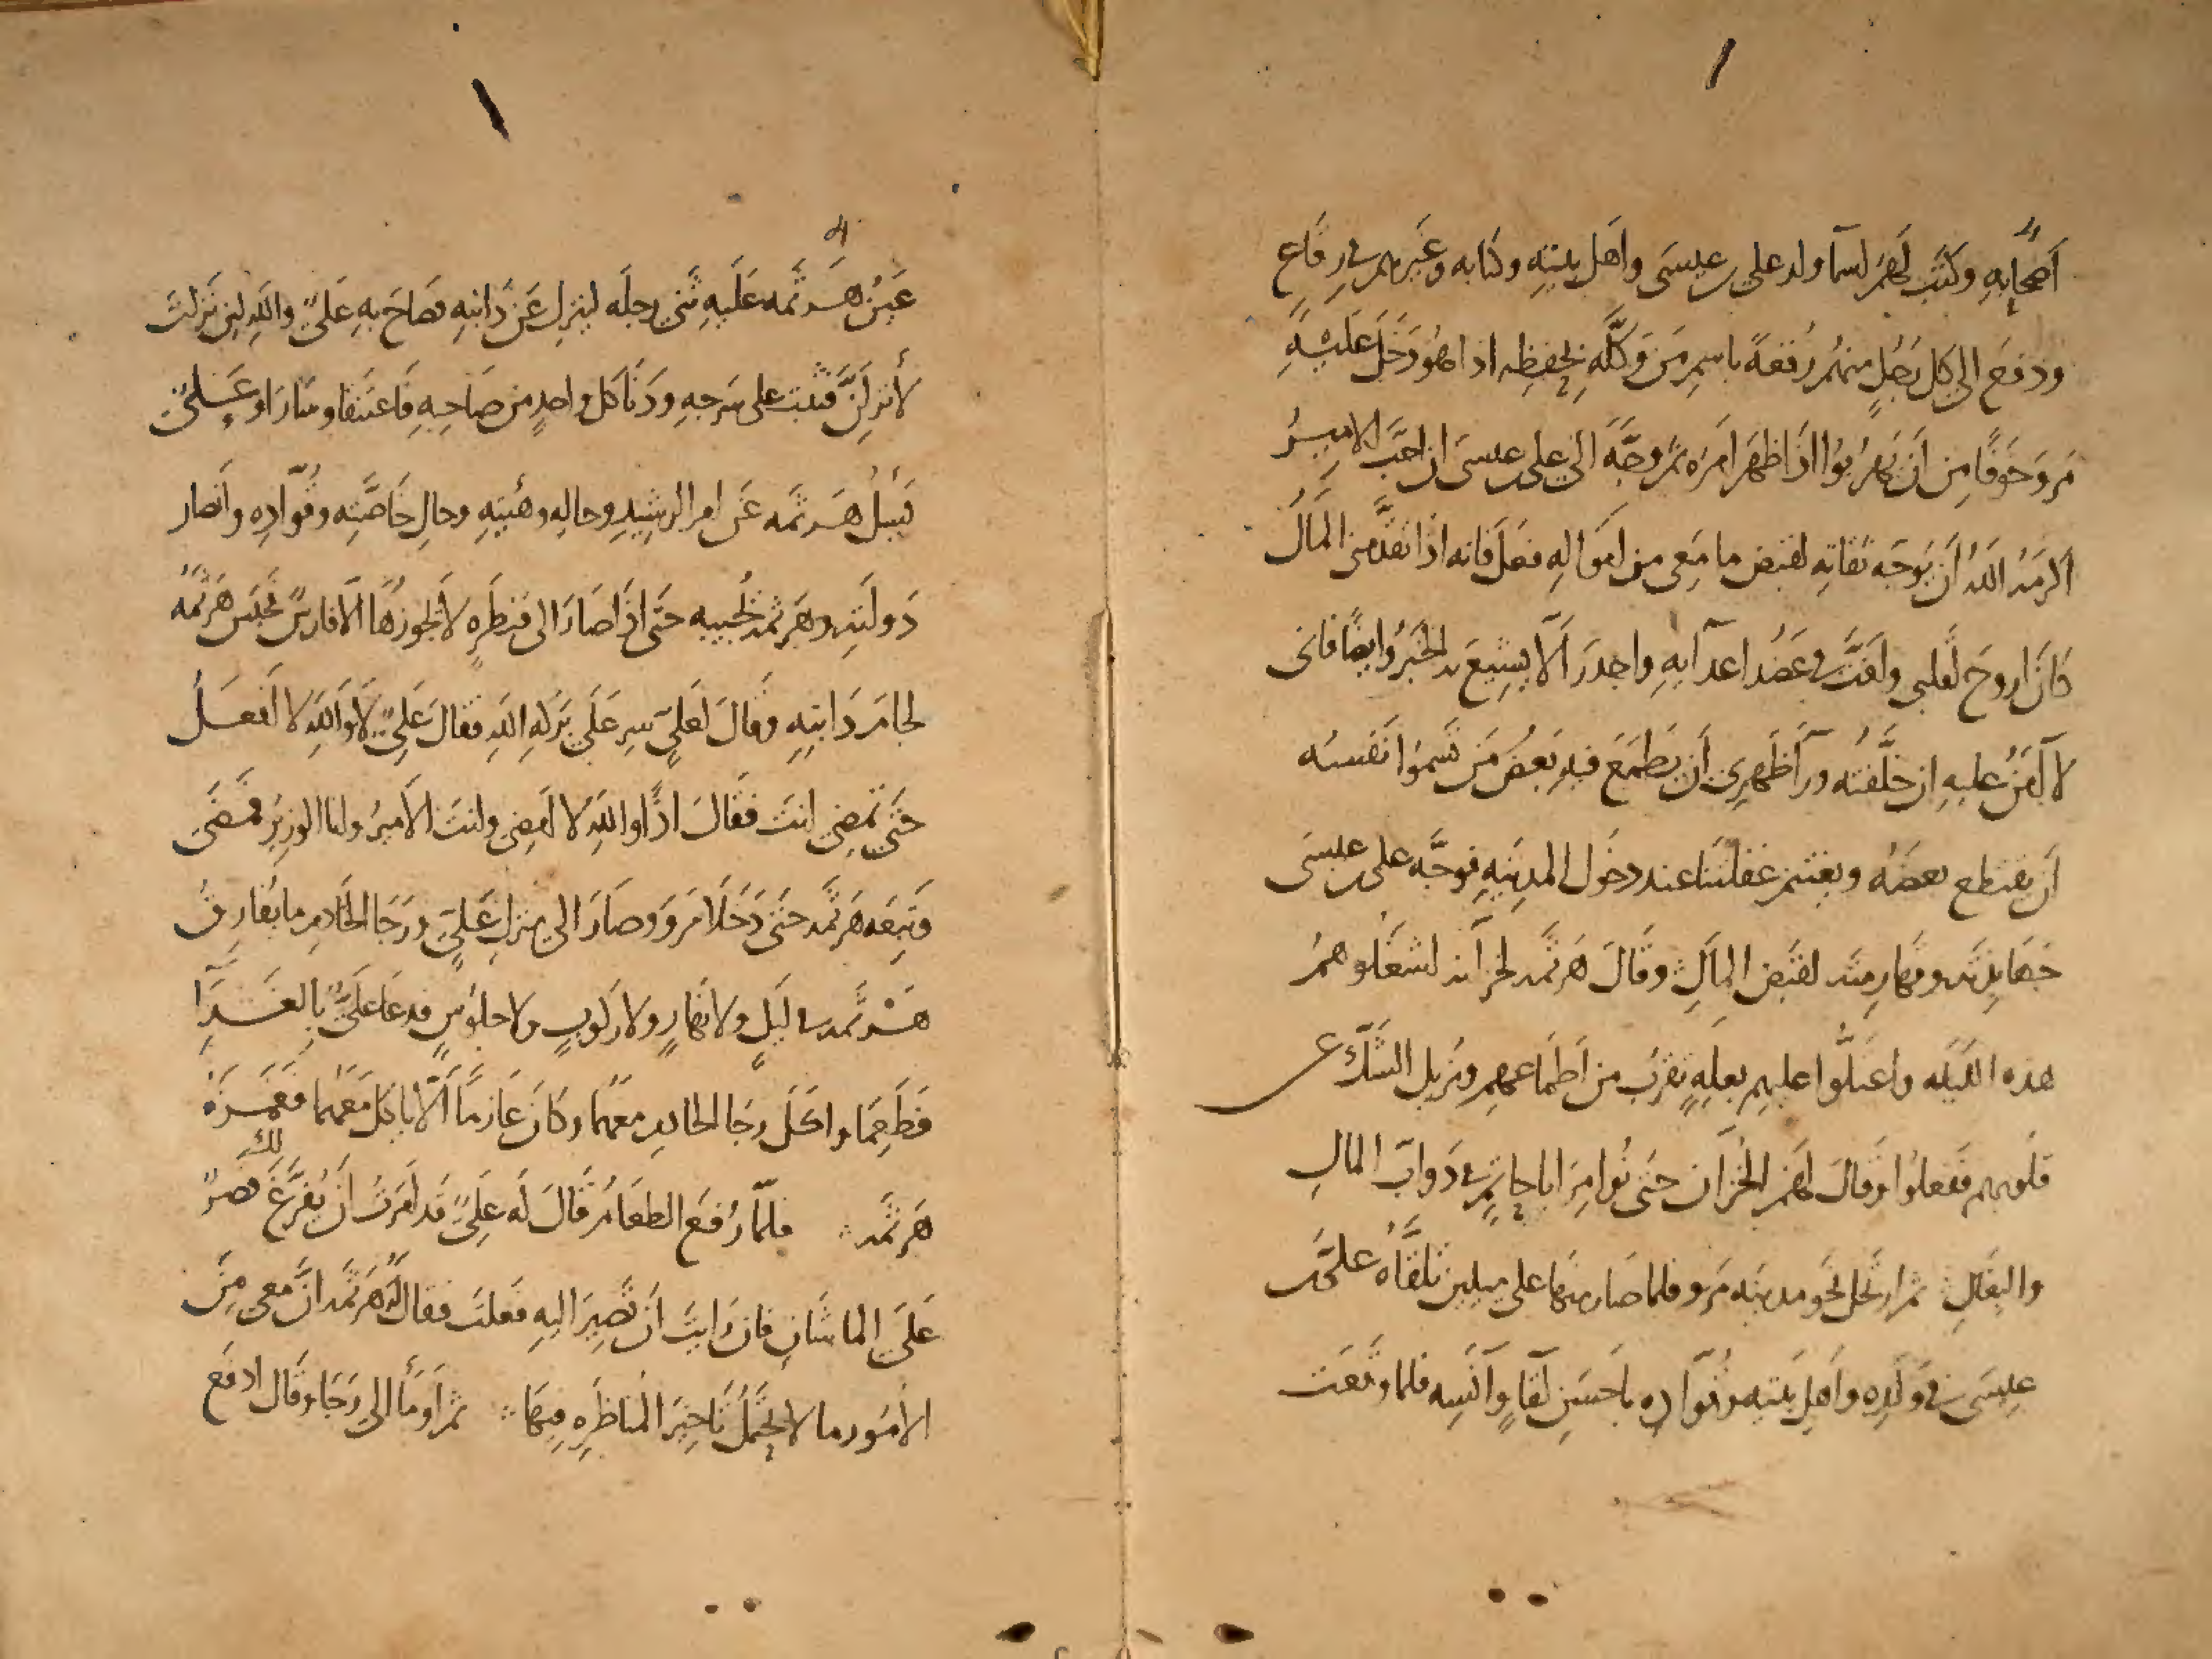 أصحابه وكتب لهم اسما ولد علي بن عيسى واهل بيته وكتابه وغيرهم في رقاع
ودفع الى كل رجل منهم رقعة باسم من وكله بحفظه اذا هو دخل عليه
مرو خوفا من ان يهربوا اذا ظهر امره ثم وجه الى علي بن عيسى ان احب الامير
اكرمه الله ان يوجه ثقاته لقبض ما معي من اموال فعل فانه اذا تقدمني المال
كان اروح لقلبي وافت في عضد اعدايه واجدر الا يشيع به الخبر وايضا فاني
لا آمن عليه ان خلفته ورآ ظهري ان يطمع فيه بعض من تسموا نفسه
ان يقتطع بعضه ويغتنم غفلتنا عند دخول المدينه فوجه علي بن عيسى
جهابذته وقهارمته لقبض المال وقال هرثمه لخزانه اشغلوهم
هذه الليله واعتلوا عليهم بعله تقرب من اطماعهم وتزيل الشك عن
قلوبهم ففعلوا وقال لهم الخزان حتى نوامر ابا حاتم في دواب المال
والبغال ثم ارتحل نحو مدينه مرو فلما صار منها على ميلين تلقاه علي بن
عيسى في ولده واهل بيته وقواده باحسن لقا وآنسه فلما وقعت
عين هرثمه عليه ثنى رجله لينزل عن دابته فصاح به علي والله لين نزلت
لأنزلن فثبت على سرجه ودنا كل واحد من صاحبه فاعتنقا وسارا وعلي
يسل هرثمه عن امر الرشيد وحاله وهيئته وحال خاصته وقواده وانصار
دولته وهرثمه يجيبه حتى اذا صارا الى قنطره لا يجوزها الا فارس فحبس هرثمه
لجام دابته وقال لعلي سر على بركه الله فقال علي لا والله لا افعل
حتى تمضي انت فقال اذا والله لا امضي وانت الامير وانا الوزير فمضى
وتبعه هرثمه حتى دخلا مرو وصارا الى منزل علي ورجا الخادم ما يفارق
هرثمه في ليل ولا نهار ولا ركوب ولا جلوس فدعا علي بالغدا
فطعما واكل رجا الخادم معهما وكان عازما الا ياكل معهما فغمزه
هرثمه فلما رفع الطعام قال له علي قد امرت ان يفرغ لك قصر
على الماشان فان رايت ان تصير اليه فعلت فقال له هرثمه ان معي من
الامور ما لا يحتمل تاخير المناظره فيها ثم اومأ الى رجا وقال ادفع